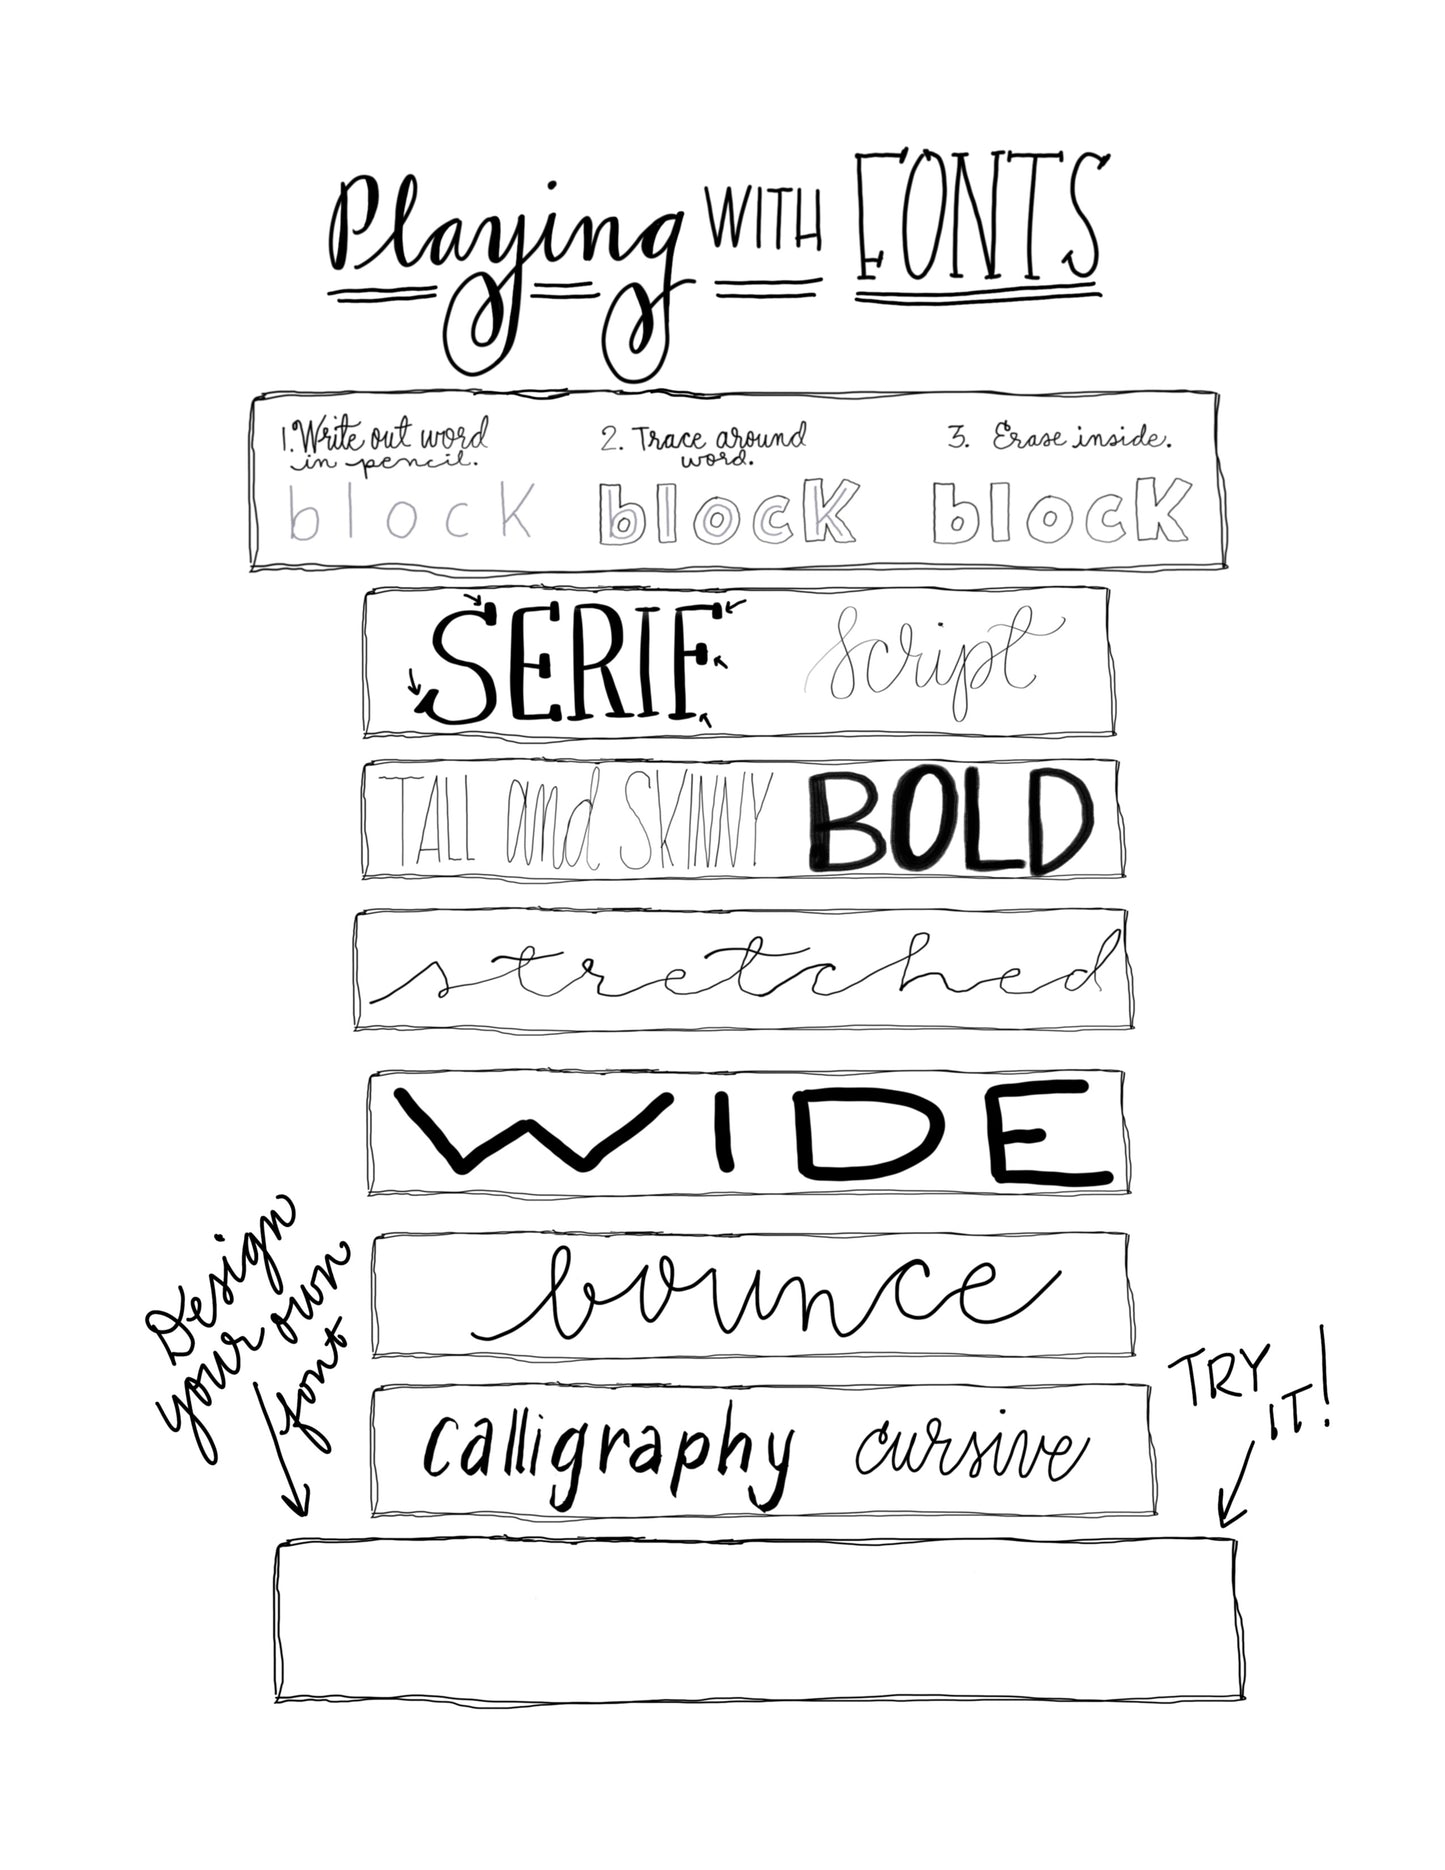 Playing WITH FONTS
1. Write out word in pencil.
2. Trace around word.
3. Erase inside.
block block block
SERIF script
TALL and SKINNY BOLD
stretched
WIDE
bounce
Design
your own
font
calligraphy cursive
TRY
IT!